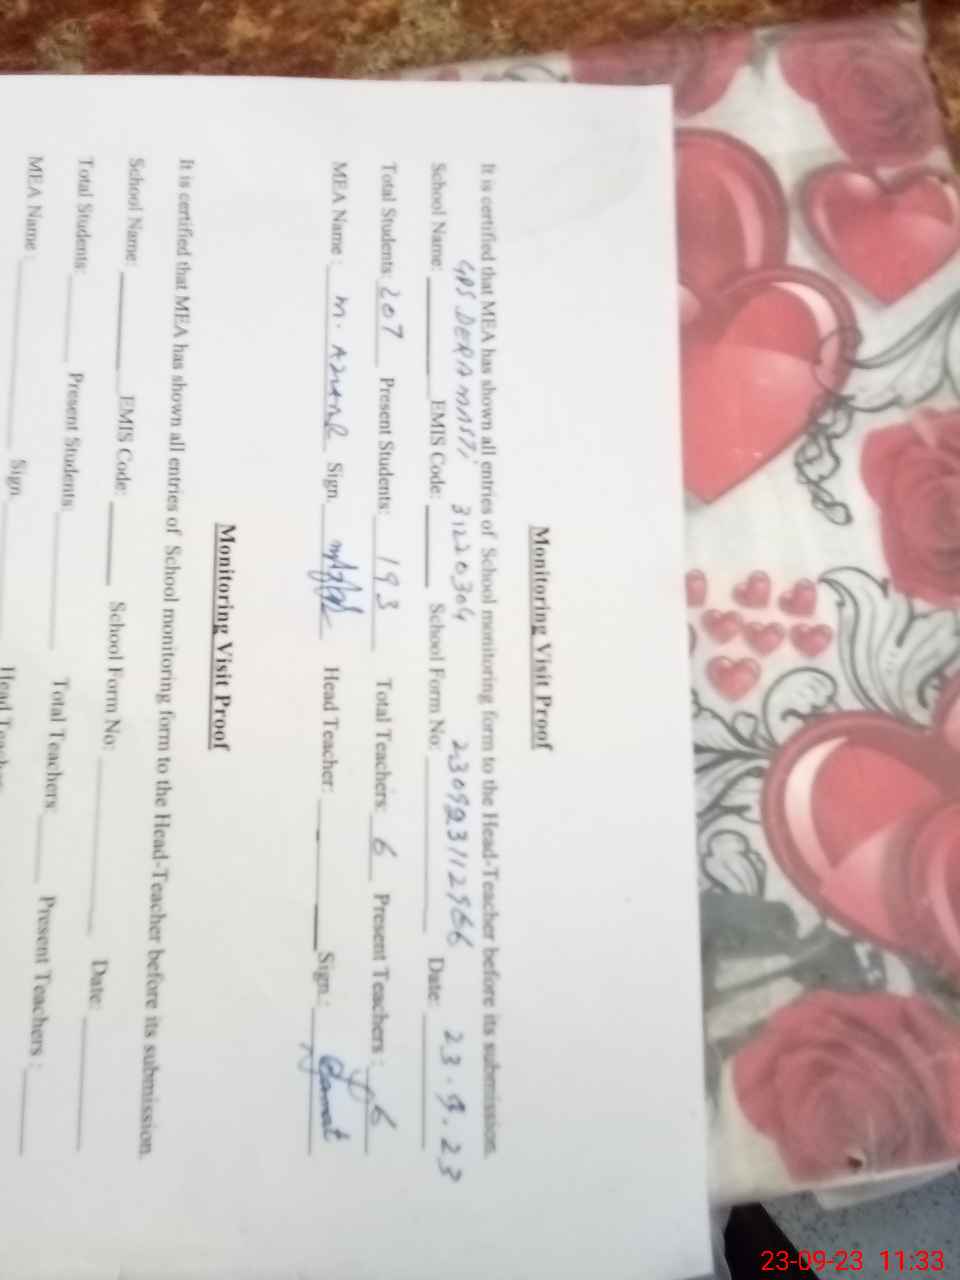 Monitoring Visit Proof
It is certified that MEA has shown all entries of School monitoring form to the Head-Teacher before its submission.
GPS DERA MASTI 31220304 230923112966 23.9.23
School Name: ______ EMIS Code: ______ School Form No: ______ Date: ______
Total Students: 207 Present Students: 193 Total Teachers: 6 Present Teachers : 6
MEA Name : M. Sign. Head Teacher: ______ Sign :
Monitoring Visit Proof
It is certified that MEA has shown all entries of School monitoring form to the Head-Teacher before its submission.
School Name: ______ EMIS Code: ______ School Form No: ______ Date: ______
Total Students: ______ Present Students: ______ Total Teachers: ______ Present Teachers : ______
MEA Name : ______ Sign. ______ Head Teacher
23-09-23 11:33